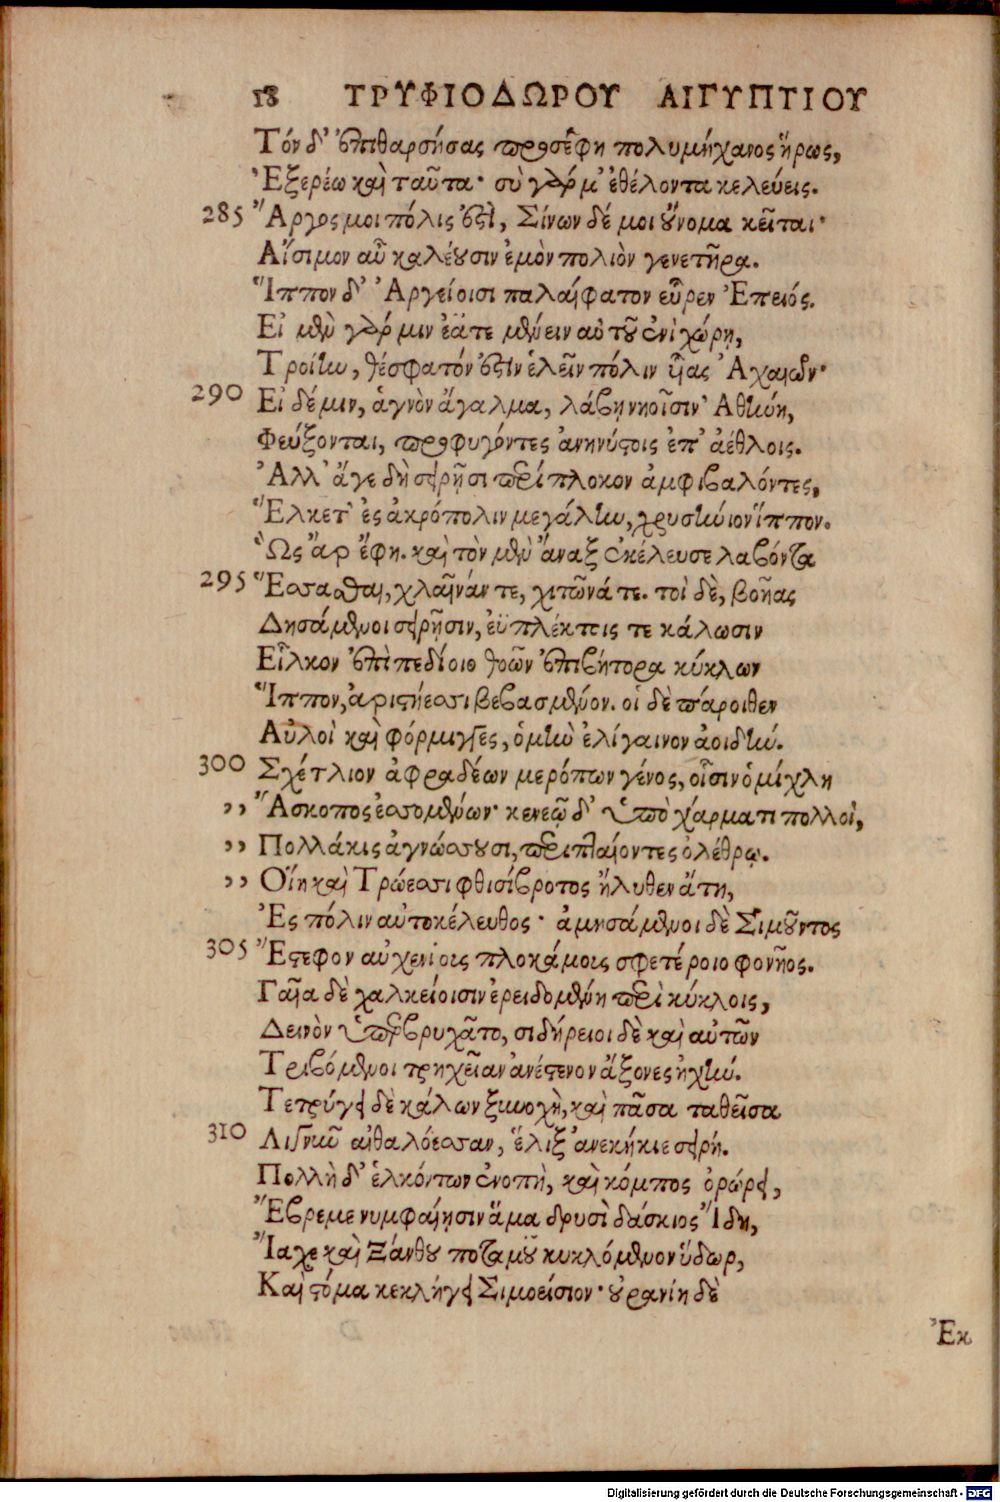 18 ΤΡΥΦΙΟΔΩΡΟΥ ΑΙΓΥΠΤΙΟΥ
Τόν δ' ἐπιθαρσήσας προσέφη πολυμήχανος ἥρως,
Ἐξερέω καὶ ταῦτα· σὺ γάρ μ' ἐθέλοντα κελεύεις.
285 Ἄργος μοι πόλις ἐστὶ, Σίνων δέ μοι οὔνομα κεῖται·
Αἴσιμον αὖ καλέουσιν ἐμὸν πολιὸν γενετῆρα.
Ἵππον δ' Ἀργείοισι παλαίφατον εὗρεν Ἐπειός.
Εἰ μὲν γάρ μιν ἐᾶτε μένειν αὐτοῦ ἐνὶ χώρῃ,
Τροίην, θέσφατόν ἐστιν ἑλεῖν πόλιν ᾗας Ἀχαιῶν·
290 Εἰ δέ μιν, ἁγνὸν ἄγαλμα, λάβῃ νηοῖσιν Ἀθήνη,
Φεύξονται, προφυγόντες ἀνηνύστοις ἐπ' ἀέθλοις.
Ἀλλ' ἄγε δὴ σειρῇσι περίπλοκον ἀμφιβαλόντες,
Ἕλκετ' ἐς ἀκρόπολιν μεγάλην, χρυσήνιον ἵππον.
Ὣς ἄρ ἔφη. καὶ τὸν μὲν ἄναξ ἐκέλευσε λαβόντα
295 Ἕσσασθαι, χλαῖνάν τε, χιτῶνά τε. τοὶ δὲ, βοῆας
Δησάμενοι σειρῇσιν, ἐϋπλέκτοις τε κάλωσιν
Εἷλκον ἐπὶ πεδίοιο θοῶν ἐπιβήτορα κύκλων
Ἵππον, ἀριστήεσσι βεβασμένον. οἱ δὲ πάροιθεν
Αὐλοὶ καὶ φόρμιγγες, ὁμὴν ἐλίγαινον ἀοιδήν.
300 Σχέτλιον ἀφραδέων μερόπων γένος, οἷσιν ὁμίχλη
,, Ἄσκοπος ἐσσομένων· κενεῷ δ' ὑπὸ χάρματι πολλοὶ,
,, Πολλάκις ἀγνώσσουσι, περιπταίοντες ὀλέθρῳ.
,, Οἵη καὶ Τρώεσσι φθισίβροτος ἤλυθεν ἄτη,
Ἐς πόλιν αὐτοκέλευθος· ἀμησάμενοι δὲ Σιμοῦντος
305 Ἔστεφον αὐχενίοις πλοκάμοις σφετέροιο φονῆος.
Γαῖα δὲ χαλκείοισιν ἐρειδομένη περὶ κύκλοις,
Δεινὸν ὑπεβρυχᾶτο, σιδήρειοι δὲ καὶ αὐτῶν
Τριβόμενοι τρηχεῖαν ἀνέστενον ἄξονες ἠχήν.
Τετρύγει δὲ κάλων ξυνοχὴ, καὶ πᾶσα ταθεῖσα
310 Λιγνὺν αἰθαλόεσσαν, ἕλιξ ἀνεκήκιε σειρή.
Πολλὴ δ' ἑλκόντων ἐνοπὴ, καὶ κόμπος ὀρώρει,
Ἔβρεμε νυμφαίῃσιν ἅμα δρυσὶ δάσκιος Ἴδη,
Ἴαχε καὶ Ξάνθου ποταμοῦ κυκλόμενον ὕδωρ,
Καὶ στόμα κεκλήγει Σιμοείσιον· οὐρανίη δὲ
Ἐκ
Digitalisierung gefördert durch die Deutsche Forschungsgemeinschaft - DFG